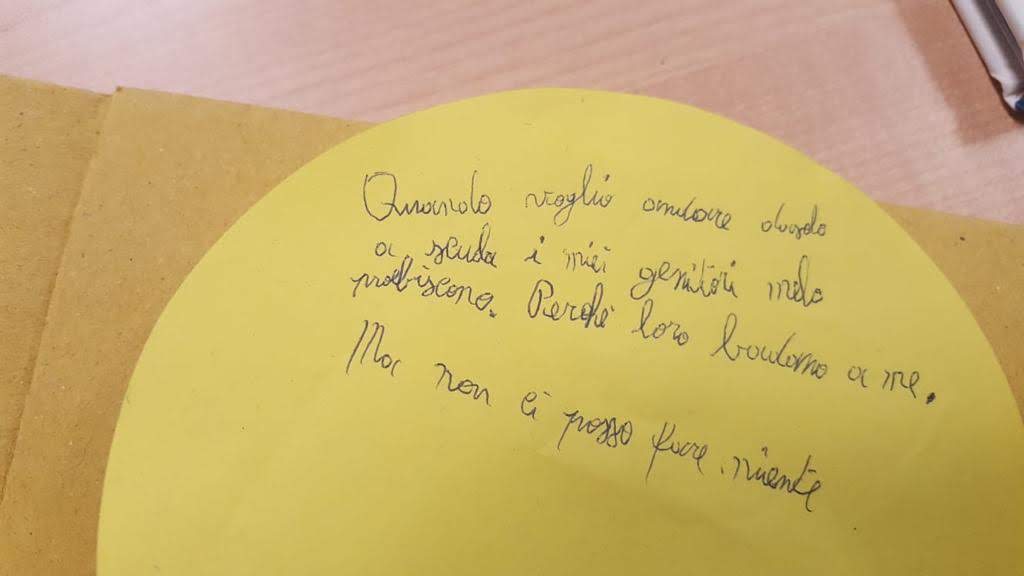 Quando voglio andare dasola
a scuola i miei genitori melo
proibiscono. Perché loro badano a me.
Ma non ci posso fare niente